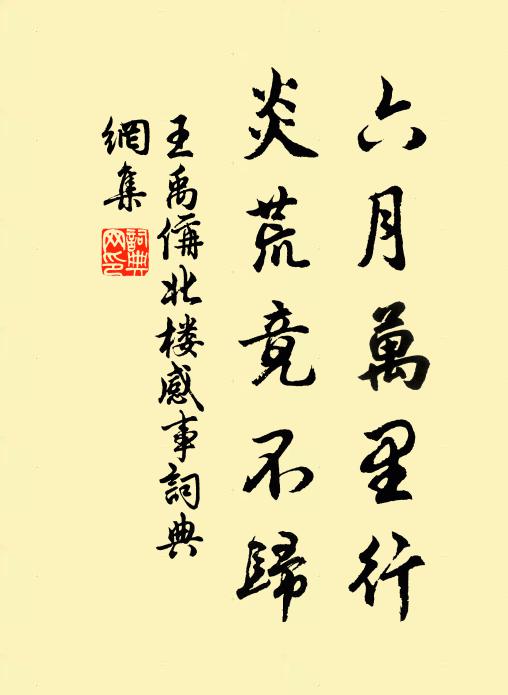 六月萬里行
炎荒竟不歸
王禹偁北楼感事詞典
網集
詞典
网印